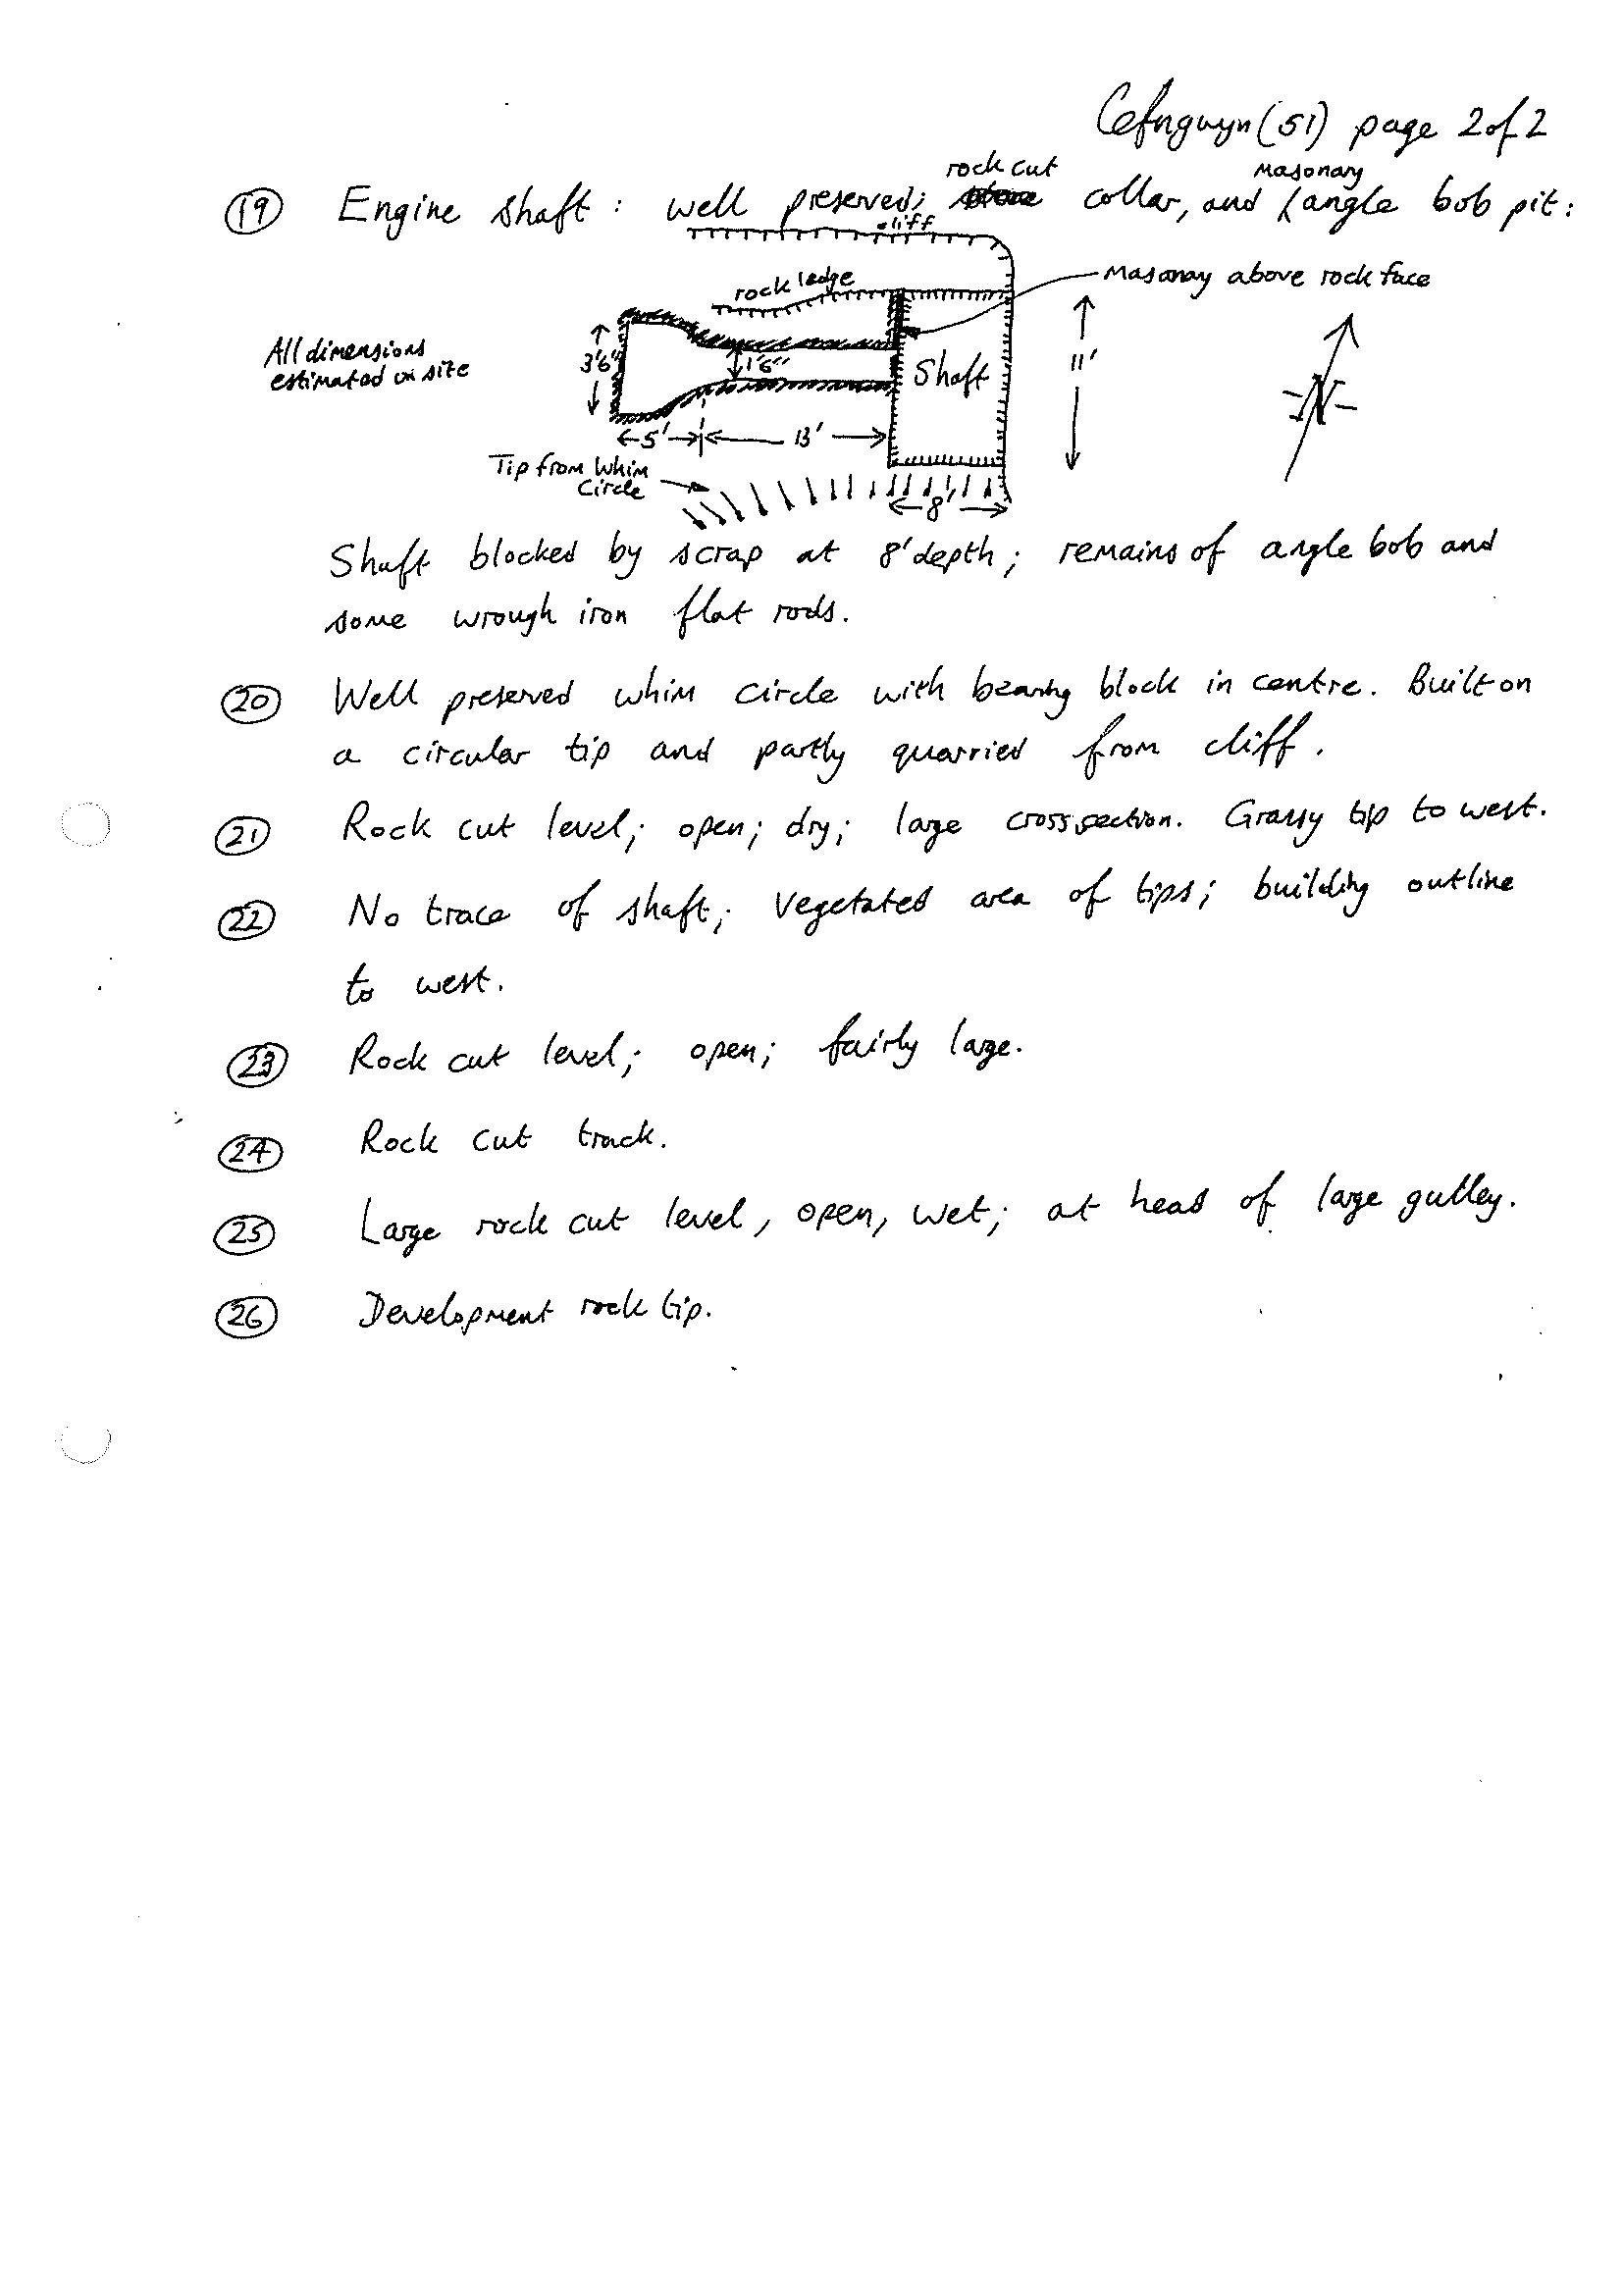 Cefngwyn (51) page 2 of 2
rock cut masonary
19 Engine shaft: well preserved; collar, and angle bob pit:
cliff
rock ledge
Masonay above rock face
All dimensions
estimated on site
3'6"
1'6"
Shaft
11'
N
5'
13'
Tip from Whim
Circle
8'
Shaft blocked by scrap at 8' depth; remains of angle bob and
some wrough iron flat rods.
20 Well preserved whim circle with bearing block in centre. Built on
a circular tip and partly quarried from cliff.
21 Rock cut level; open; dry; large cross section. Grassy tip to west.
22 No trace of shaft; vegetated area of tips; building outline
to west.
23 Rock cut level; open; fairly large.
24 Rock cut track.
25 Large rock cut level, open, wet; at head of large gulley.
26 Development rock tip.